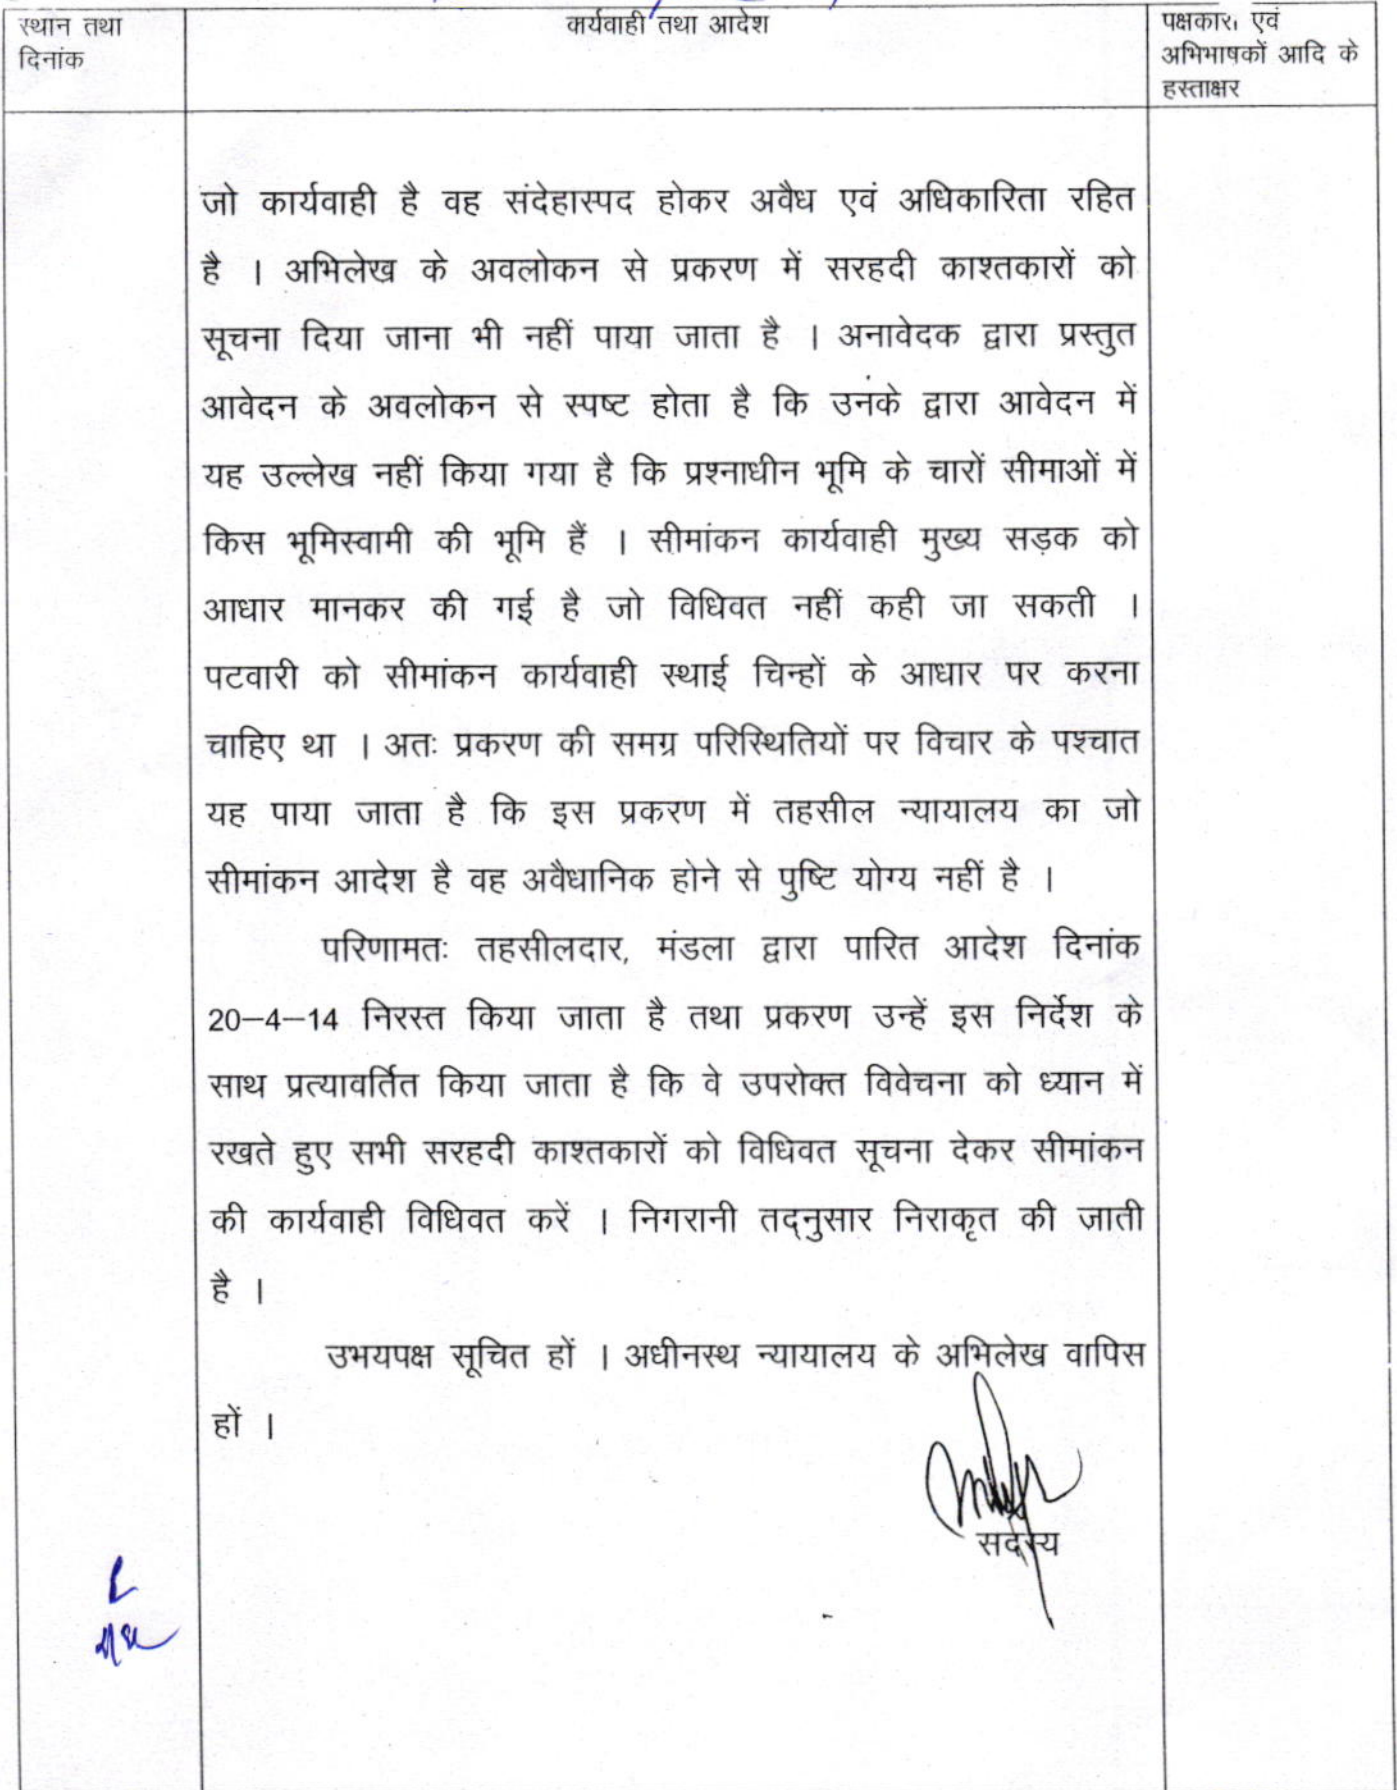 स्थान तथा
दिनांक
कार्यवाही तथा आदेश
पक्षकारों एवं
अभिभाषकों आदि के
हस्ताक्षर
जो कार्यवाही है वह संदेहास्पद होकर अवैध एवं अधिकारिता रहित
है । अभिलेख के अवलोकन से प्रकरण में सरहदी काश्तकारों को
सूचना दिया जाना भी नहीं पाया जाता है । अनावेदक द्वारा प्रस्तुत
आवेदन के अवलोकन से स्पष्ट होता है कि उनके द्वारा आवेदन में
यह उल्लेख नहीं किया गया है कि प्रश्नाधीन भूमि के चारों सीमाओं में
किस भूमिस्वामी की भूमि हैं । सीमांकन कार्यवाही मुख्य सड़क को
आधार मानकर की गई है जो विधिवत नहीं कही जा सकती ।
पटवारी को सीमांकन कार्यवाही स्थाई चिन्हों के आधार पर करना
चाहिए था । अतः प्रकरण की समग्र परिस्थितियों पर विचार के पश्चात
यह पाया जाता है कि इस प्रकरण में तहसील न्यायालय का जो
सीमांकन आदेश है वह अवैधानिक होने से पुष्टि योग्य नहीं है ।
परिणामतः तहसीलदार, मंडला द्वारा पारित आदेश दिनांक
20–4–14 निरस्त किया जाता है तथा प्रकरण उन्हें इस निर्देश के
साथ प्रत्यावर्तित किया जाता है कि वे उपरोक्त विवेचना को ध्यान में
रखते हुए सभी सरहदी काश्तकारों को विधिवत सूचना देकर सीमांकन
की कार्यवाही विधिवत करें । निगरानी तद्नुसार निराकृत की जाती
है ।
उभयपक्ष सूचित हों । अधीनस्थ न्यायालय के अभिलेख वापिस
हों ।
सदस्य